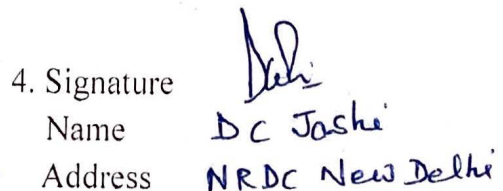 4. Signature
Name D C Joshi
Address NRDC New Delhi